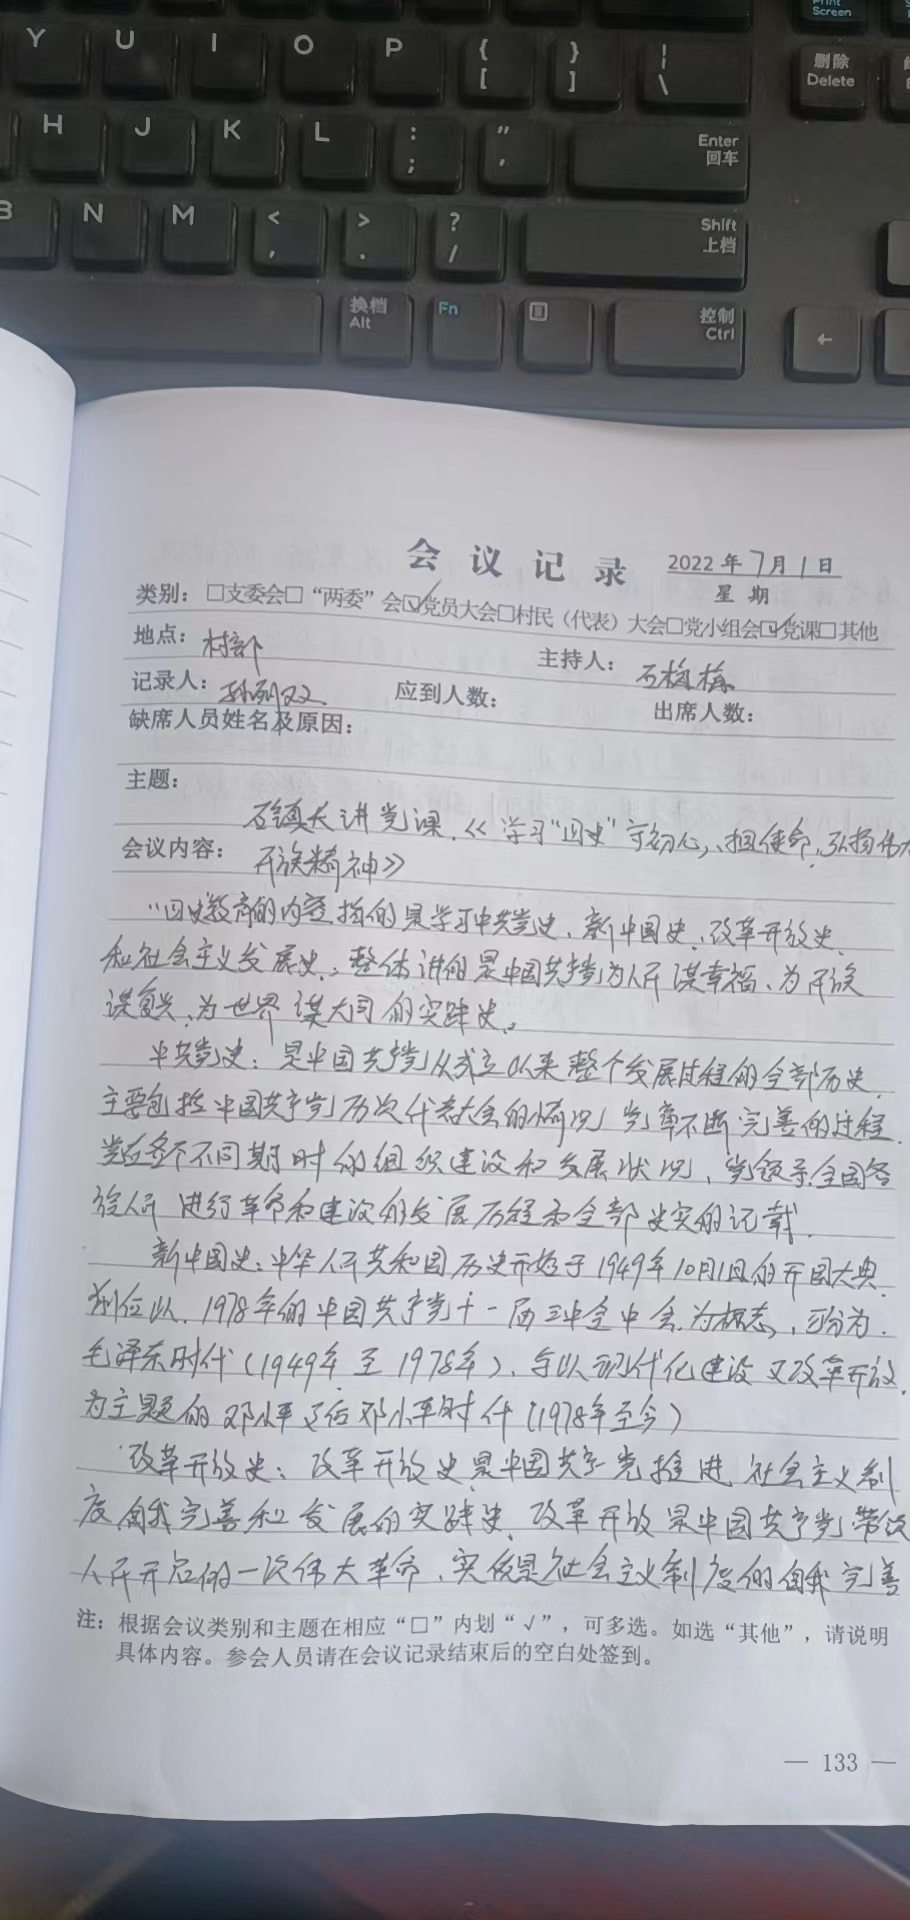 Print
Screen
Y U I O P { [ } ] | \
删除
Delete
H J K L : ; " '
Enter
回车
B N M < , > . ? /
Shift
上档
换档
Alt
Fn
控制
Ctrl
←
会议记录
2022年7月1日
星期
类别：□支委会□“两委”会☑党员大会□村民（代表）大会□党小组会☑党课□其他
地点：村部
主持人：石梅梅
记录人：孙列双
应到人数：
出席人数：
缺席人员姓名及原因：
主题：
石镇长讲党课.《学习“四史”守初心，担使命，弘扬伟大
会议内容：民族精神》
“四史教育的内容指的是学习中共党史、新中国史、改革开放史
和社会主义发展史。整体讲的是中国共产党为人民谋幸福、为民族
谋复兴、为世界谋大同的实践史。
中共党史：是中国共产党从成立以来整个发展过程的全部历史
主要包括中国共产党历次代表大会的情况，党章不断完善的过程.
党在各个不同期时的组织建设和发展状况，党领导全国各
族人民进行革命和建设的发展历程和全部史实的记载.
新中国史：中华人民共和国历史开始于1949年10月1日的开国大典
以1978年的中国共产党十一届三中全中会为标志，可分为.
毛泽东时代（1949年至1978年），与以现代化建设又改革开放
为主题的邓小平及后邓小平时代（1978年至今）
改革开放史：改革开放史是中国共产党推进社会主义制
度自我完善和发展的实践史，改革开放是中国共产党带领
人民开启的一次伟大革命，实质是社会主义制度的自我完善
注：根据会议类别和主题在相应“□”内划“√”，可多选。如选“其他”，请说明
具体内容。参会人员请在会议记录结束后的空白处签到。
— 133 —